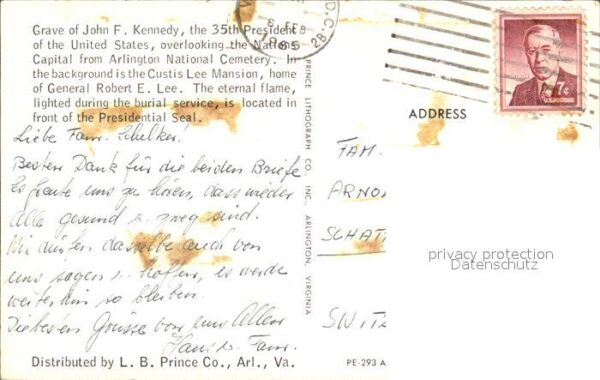 Grave of John F. Kennedy, the 35th President
of the United States, overlooking the Nations
Capital from Arlington National Cemetery. In
the background is the Custis Lee Mansion, home
of General Robert E. Lee. The eternal flame,
lighted during the burial service, is located in
front of the Presidential Seal.
Liebe Fam. Schelker!
Besten Dank für die beiden Briefe
Es freute uns zu hören, dass wieder
alle gesund u. zweg sind.
Wir dürfen dasselbe auch von
uns sagen u. hoffen, es werde
weiterhin so bleiben.
Liebsten Grüsse von uns Allen
Fam.
Distributed by L. B. Prince Co., Arl., Va.
PRINCE LITHOGRAPH CO., INC., ARLINGTON, VIRGINIA
D.C.
6 FEB
2B
7¢
U.S. POSTAGE
ADDRESS
FAM.
ARNO
SCHAT
privacy protection
Datenschutz
PE-293 A